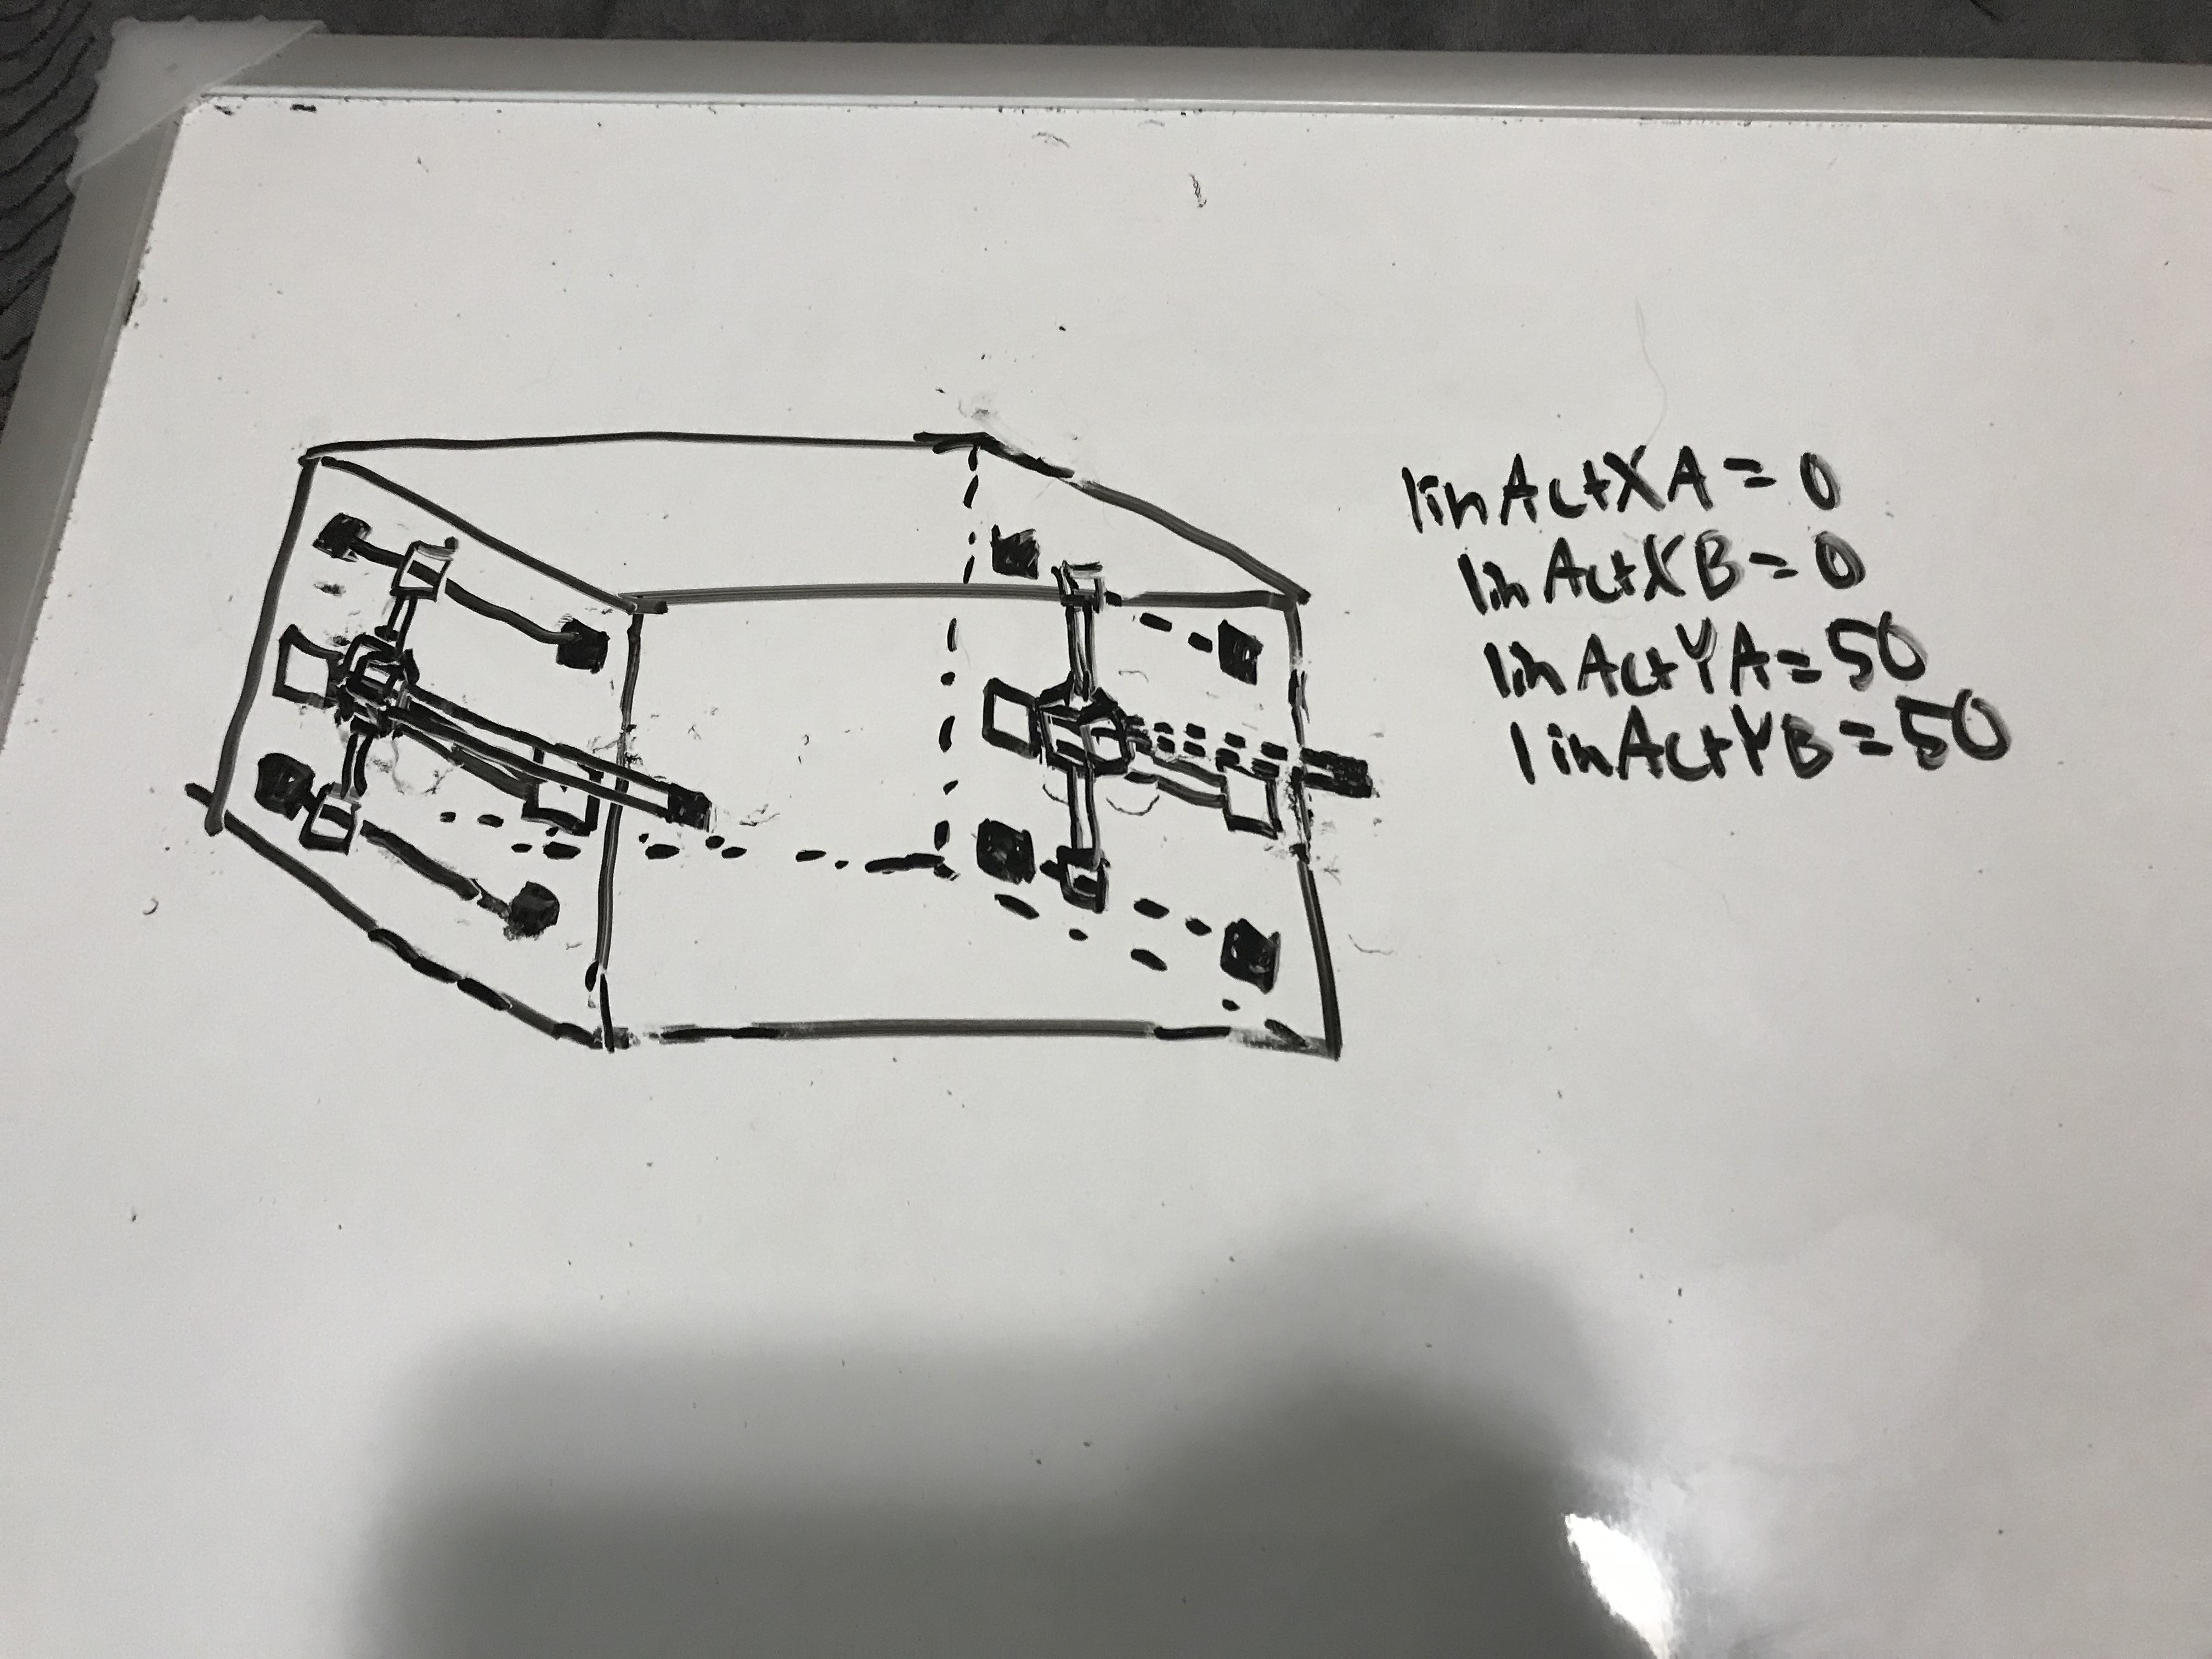 linActXA = 0
linActXB = 0
linActYA = 50
linActYB = 50